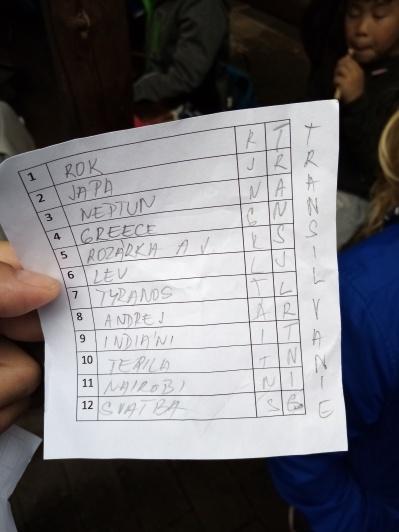 1 ROK R T
2 JAPA J R
3 NEPTUN N A
4 GREECE G N
5 ROZÁRKA A V. R S
6 LEV L J
7 TYRANOS T L
8 ANDREJ A R
9 INDIÁNI I T
10 TEPILA T N
11 NAIROBI N I
12 SVATBA S E
TRANSILVANIE